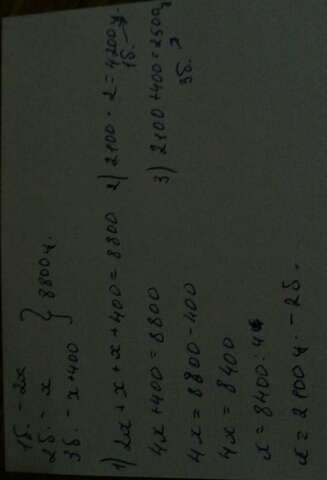 1б. - 2x
2б. - x } 8800ц.
3б. - x+400
1) 2x+x+x+400=8800
4x+400=8800
4x=8800-400
4x=8400
x=8400:4
x=2100ц. - 2б.
2) 2100·2=4200ц.
1б.
3) 2100+400=2500ц
3б.